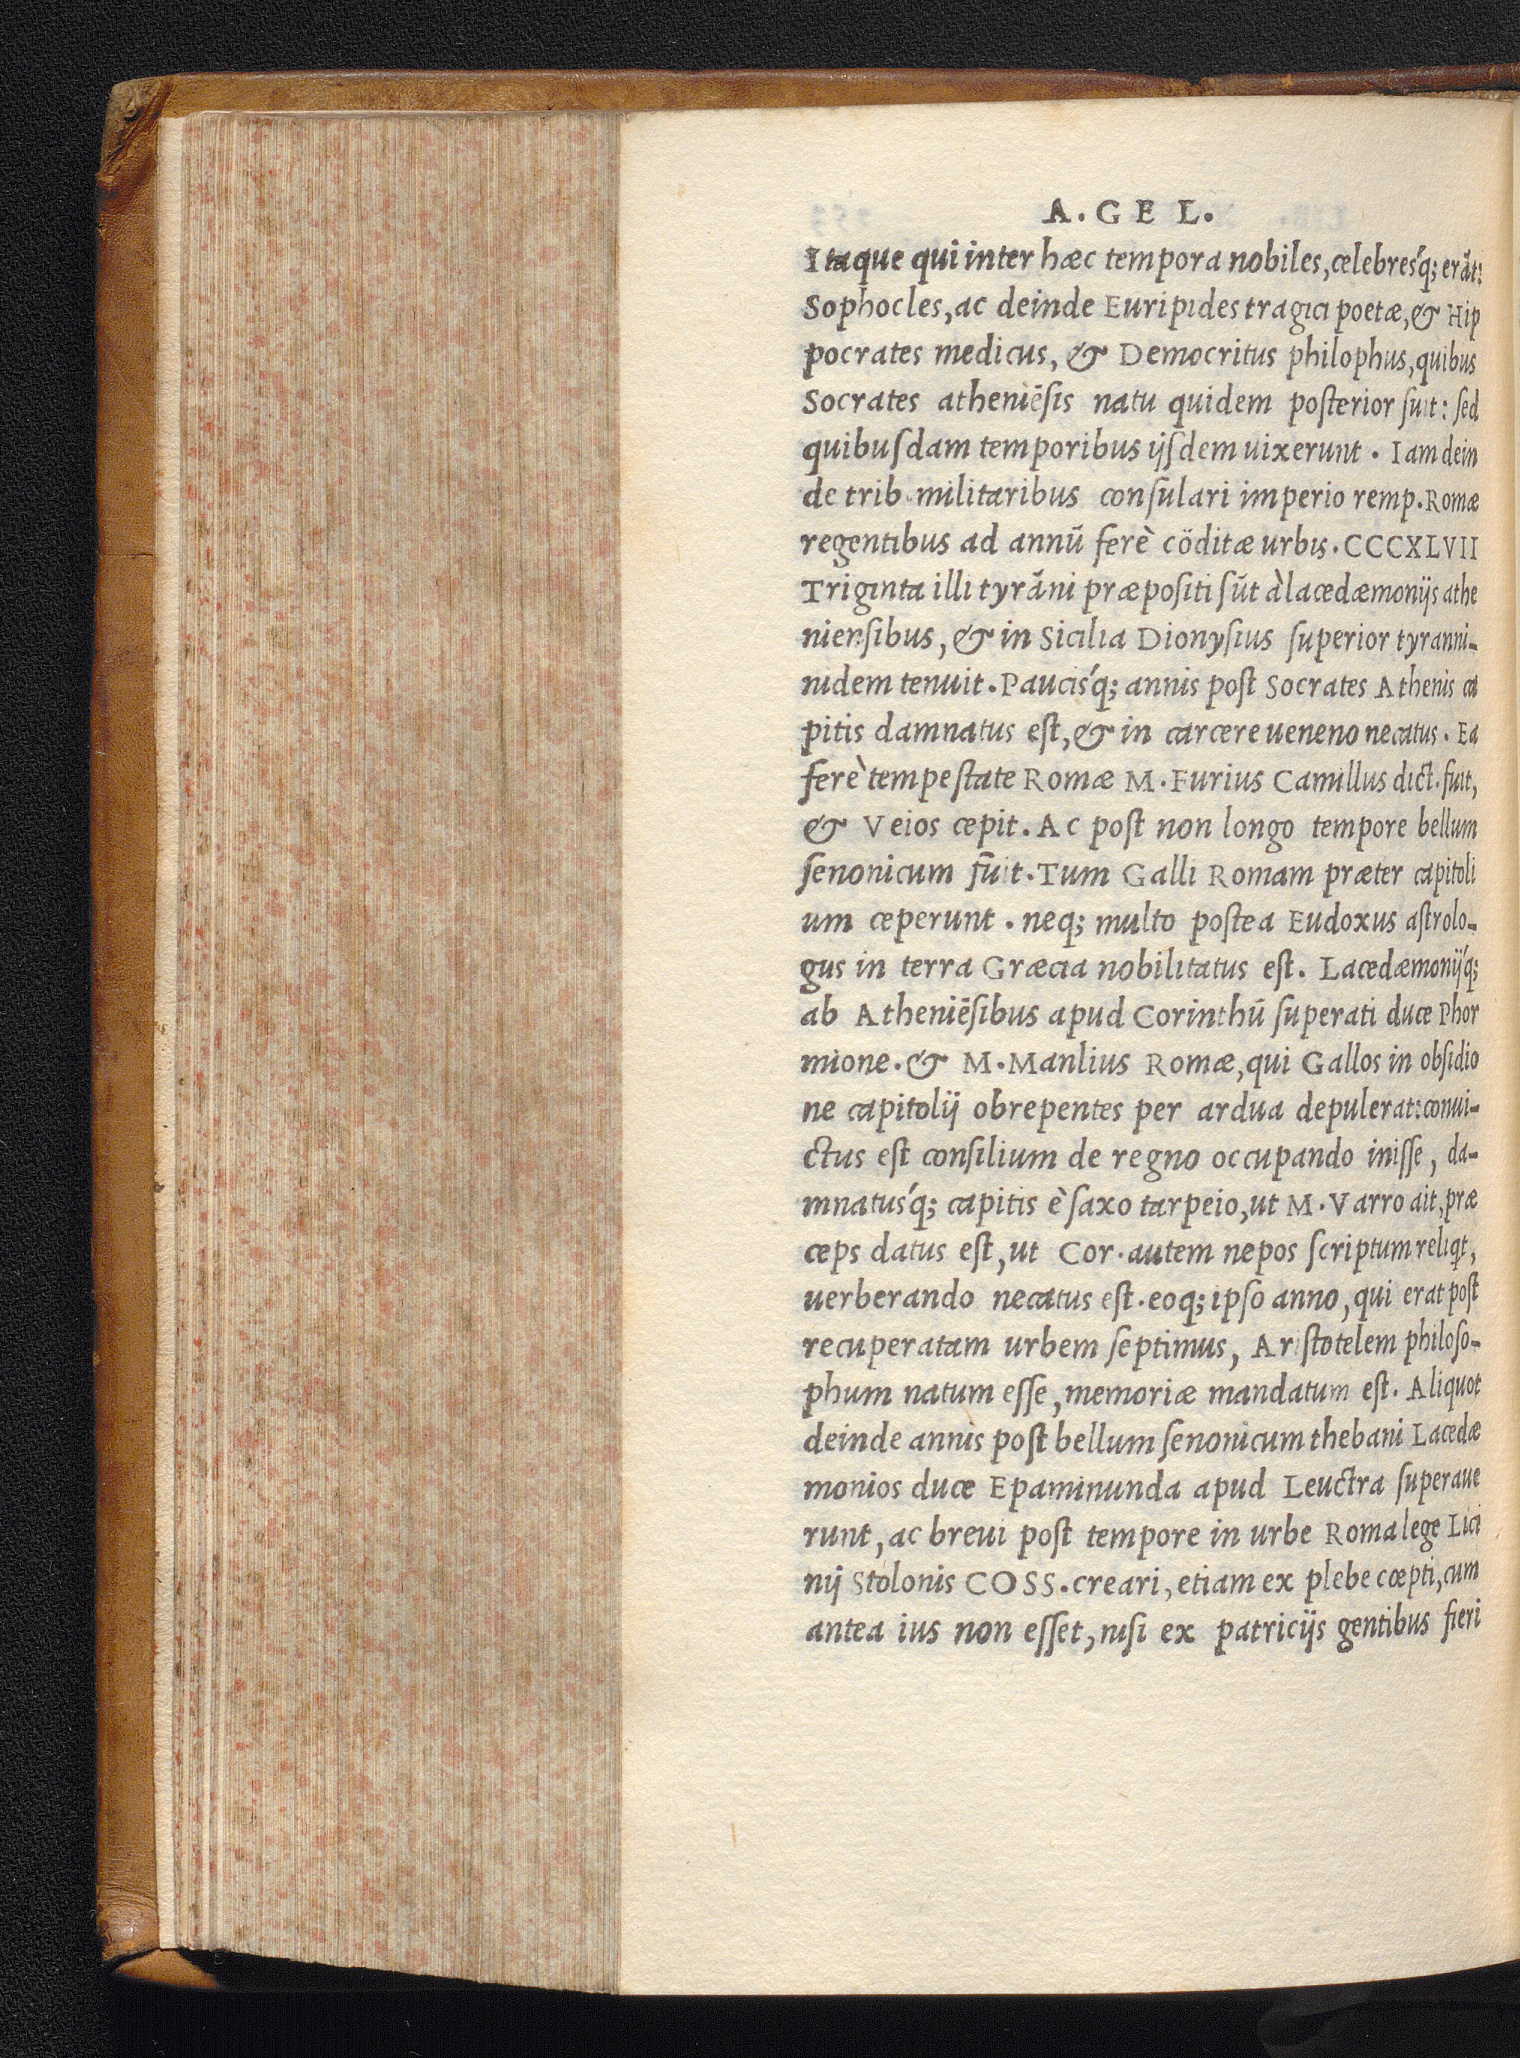 A. GEL.
Itaque qui inter hæc tempora nobiles, celebresq́; erãt:
Sophocles, ac deinde Euripides tragici poetæ, & Hip
pocrates medicus, & Democritus philophus, quibus
Socrates atheniẽſis natu quidem poſterior fuit: ſed
quibuſdam temporibus ijſdem uixerunt. Iam dein
de trib. militaribus conſulari imperio remp. Romæ
regentibus ad annũ ferè cöditæ urbis. CCCXLVII
Triginta illi tyrãni præpoſiti ſũt à lacedæmonijs athe
nienſibus, & in Sicilia Dionyſius ſuperior tyranni-
nidem tenuit. Pauciśq; annis poſt Socrates Athenis ca
pitis damnatus eſt, & in carcere ueneno necatus. Ea
ferè tempeſtate Romæ M. Furius Camillus dict. fuit,
& Veios cepit. Ac poſt non longo tempore bellum
ſenonicum fuit. Tum Galli Romam præter capitoli
um ceperunt. neq; multo poſtea Eudoxus aſtrolo-
gus in terra Græcia nobilitatus eſt. Lacedæmonijq́;
ab Atheniẽſibus apud Corinthũ ſuperati duce Phor
mione. & M. Manlius Romæ, qui Gallos in obſidio
ne capitolij obrepentes per ardua depulerat: conui-
ctus eſt conſilium de regno occupando iniſſe, da-
mnatusq́; capitis è ſaxo tarpeio, ut M. Varro ait, præ
ceps datus eſt, ut Cor. autem nepos ſcriptum reliqt,
uerberando necatus eſt. eoq; ipſo anno, qui erat poſt
recuperatam urbem ſeptimus, Ariſtotelem philoſo-
phum natum eſſe, memoriæ mandatum eſt. Aliquot
deinde annis poſt bellum ſenonicum thebani Lacedæ
monios duce Epaminunda apud Leuctra ſuperaue
runt, ac breui poſt tempore in urbe Roma lege Lici
nij Stolonis COSS. creari, etiam ex plebe cœpti, cum
antea ius non eſſet, niſi ex patricijs gentibus fieri